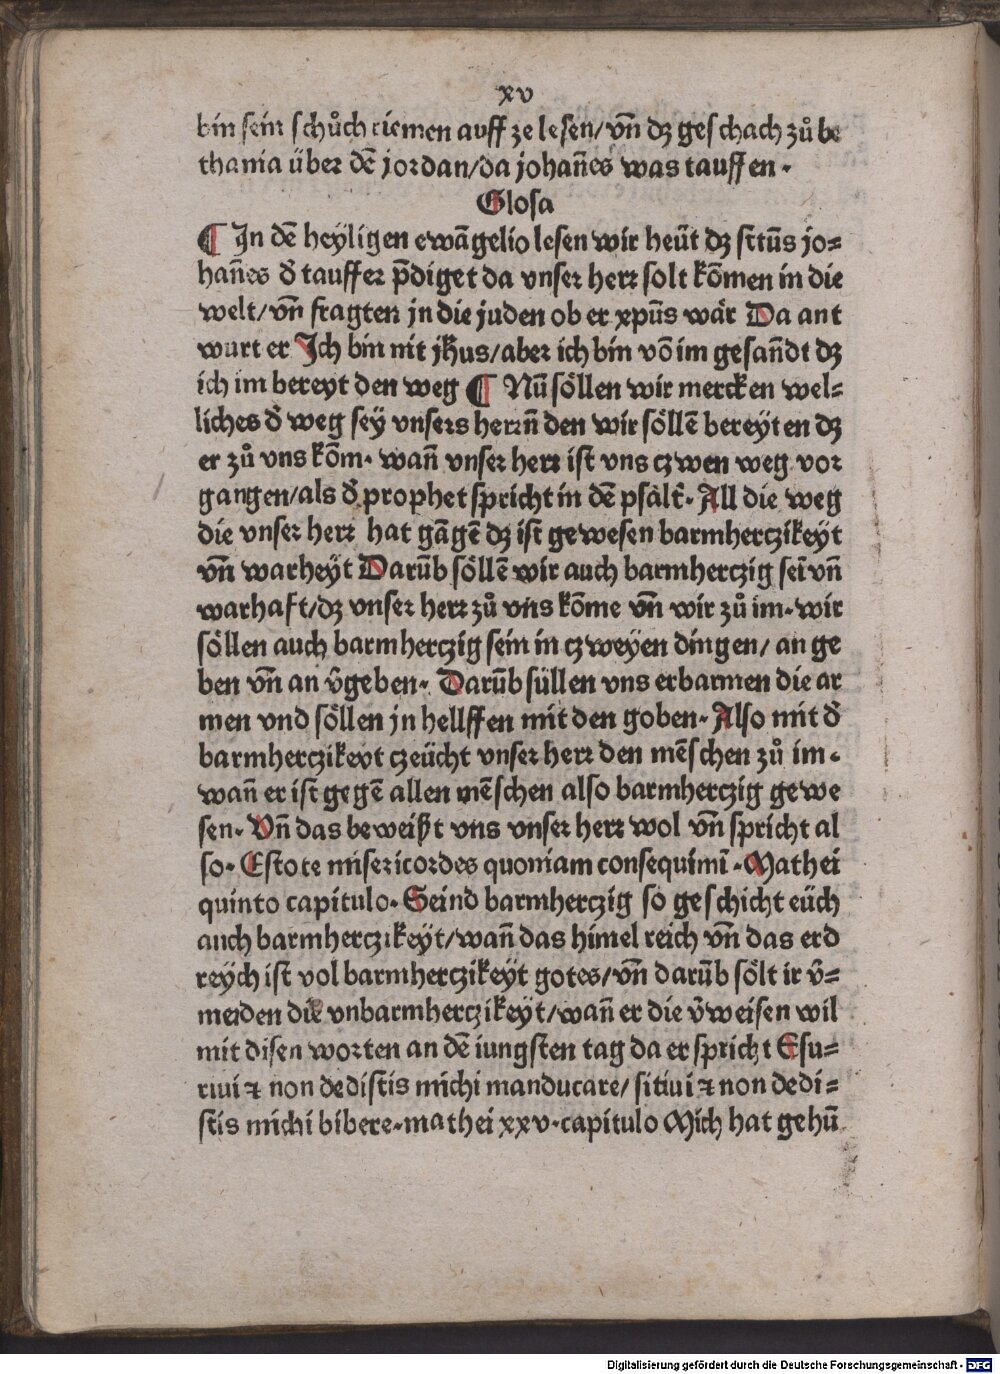 xv
bin sein schůch riemen auff ze lesen/vn̄ dz geschach zů be
thania über dē jordan/da johan̄es was tauffen.
Glosa
¶ In dē heyligen ewāgelio lesen wir heüt dz sctūs jo-
han̄es d̓ tauffer p̄diget da vnser herr solt kōmen in die
welt/vn̄ fragten jn die juden ob er xpūs wär Da ant
wurt er Ich bin nit jħus/aber ich bin vō im gesan̄dt dz
ich im bereyt den weg ¶ Nū söllen wir mercken wel-
liches d̓ weg sey vnsers herrn̄ den wir söllē bereyten dz
er zů vns kōm. wan̄ vnser herr ist vns czwen weg vor
gangen/als d̓ prophet spricht in dē psalt̓. All die weg
die vnser herr hat gāgē dz ist gewesen barmherczikeyt
vn̄ warheyt Darūb söllē wir auch barmherczig sei̅ vn̄
warhaft/dz vnser herr zů vns kōme vn̄ wir zů im. wir
söllen auch barmherczig sein in czweyen dingen/ an ge
ben vn̄ an v̓geben. Darūb süllen vns erbarmen die ar
men vnd söllen jn hellffen mit den goben. Also mit d̓
barmherczikeyt czeücht vnser herr den mēschen zů im.
wan̄ er ist gegē allen mēschen also barmherczig gewe
sen. Vn̄ das beweißt vns vnser herr wol vn̄ spricht al
so. Estote misericordes quoniam consequimi̅. Mathei
quinto capitulo. Seind barmherczig so geschicht eüch
auch barmherczikeyt/wan̄ das himel reich vn̄ das erd
reych ist vol barmherczikeyt gotes/vn̄ darūb sölt ir v̓-
meiden die vnbarmherczikeyt/wan̄ er die v̓weisen wil
mit disen worten an dē iungsten tag da er spricht Esu-
riui ⁊ non dedistis michi manducare/ sitiui ⁊ non dedi-
stis michi bibere. mathei xxv. capitulo Mich hat gehū
Digitalisierung gefördert durch die Deutsche Forschungsgemeinschaft - DFG